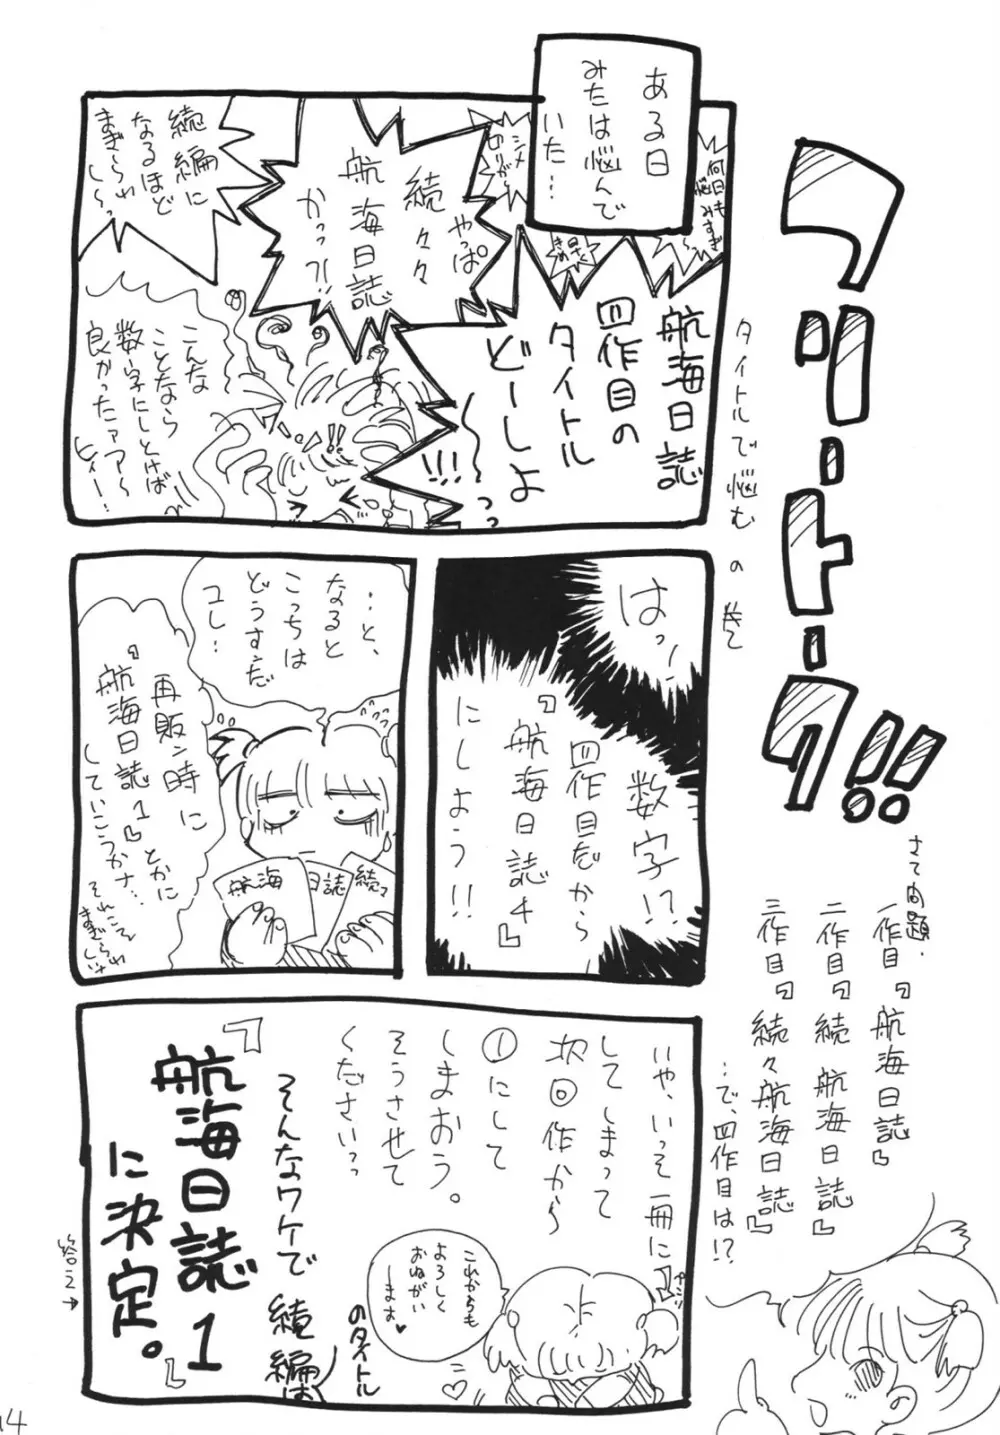 フリートーク!!
タイトルで悩むの巻
さて問題。
一作目『航海日誌』
二作目『続航海日誌』
三作目『続々航海日誌』
…で、四作目は!?
ある日
みたは悩んで
いた…
何日も
悩みすぎ
航海日誌
四作目の
タイトル
どーしよ
〜〜っっ
!!!
早く
きめ
シメ
キリが〜
やっぱ
続々々
航海日誌
かっっ?!!
続編に
なるほど
まぎらわ
し〜っ
こんな
ことなら
数字にしとけば
良かったァァ〜
ヒィー!
はっ
数字!?
四作目だから
『航海日誌4』
にしよう!!
…と、
なると
こっちは
どうすんだ
コレ…
航海
日誌
続々
再販ン時に
『航海日誌1』とかに
していこうかナ…
それこそ
まぎらわ
しいか
いや、いっそ一冊に
してしまって
次回作から
①にして
しまおう。
そうさせて
くださいっっ
これからも
よろしく
おねがい
します♥
そんなワケで続編は
のタイトル
『航海日誌1』
に決定。
答え→
14